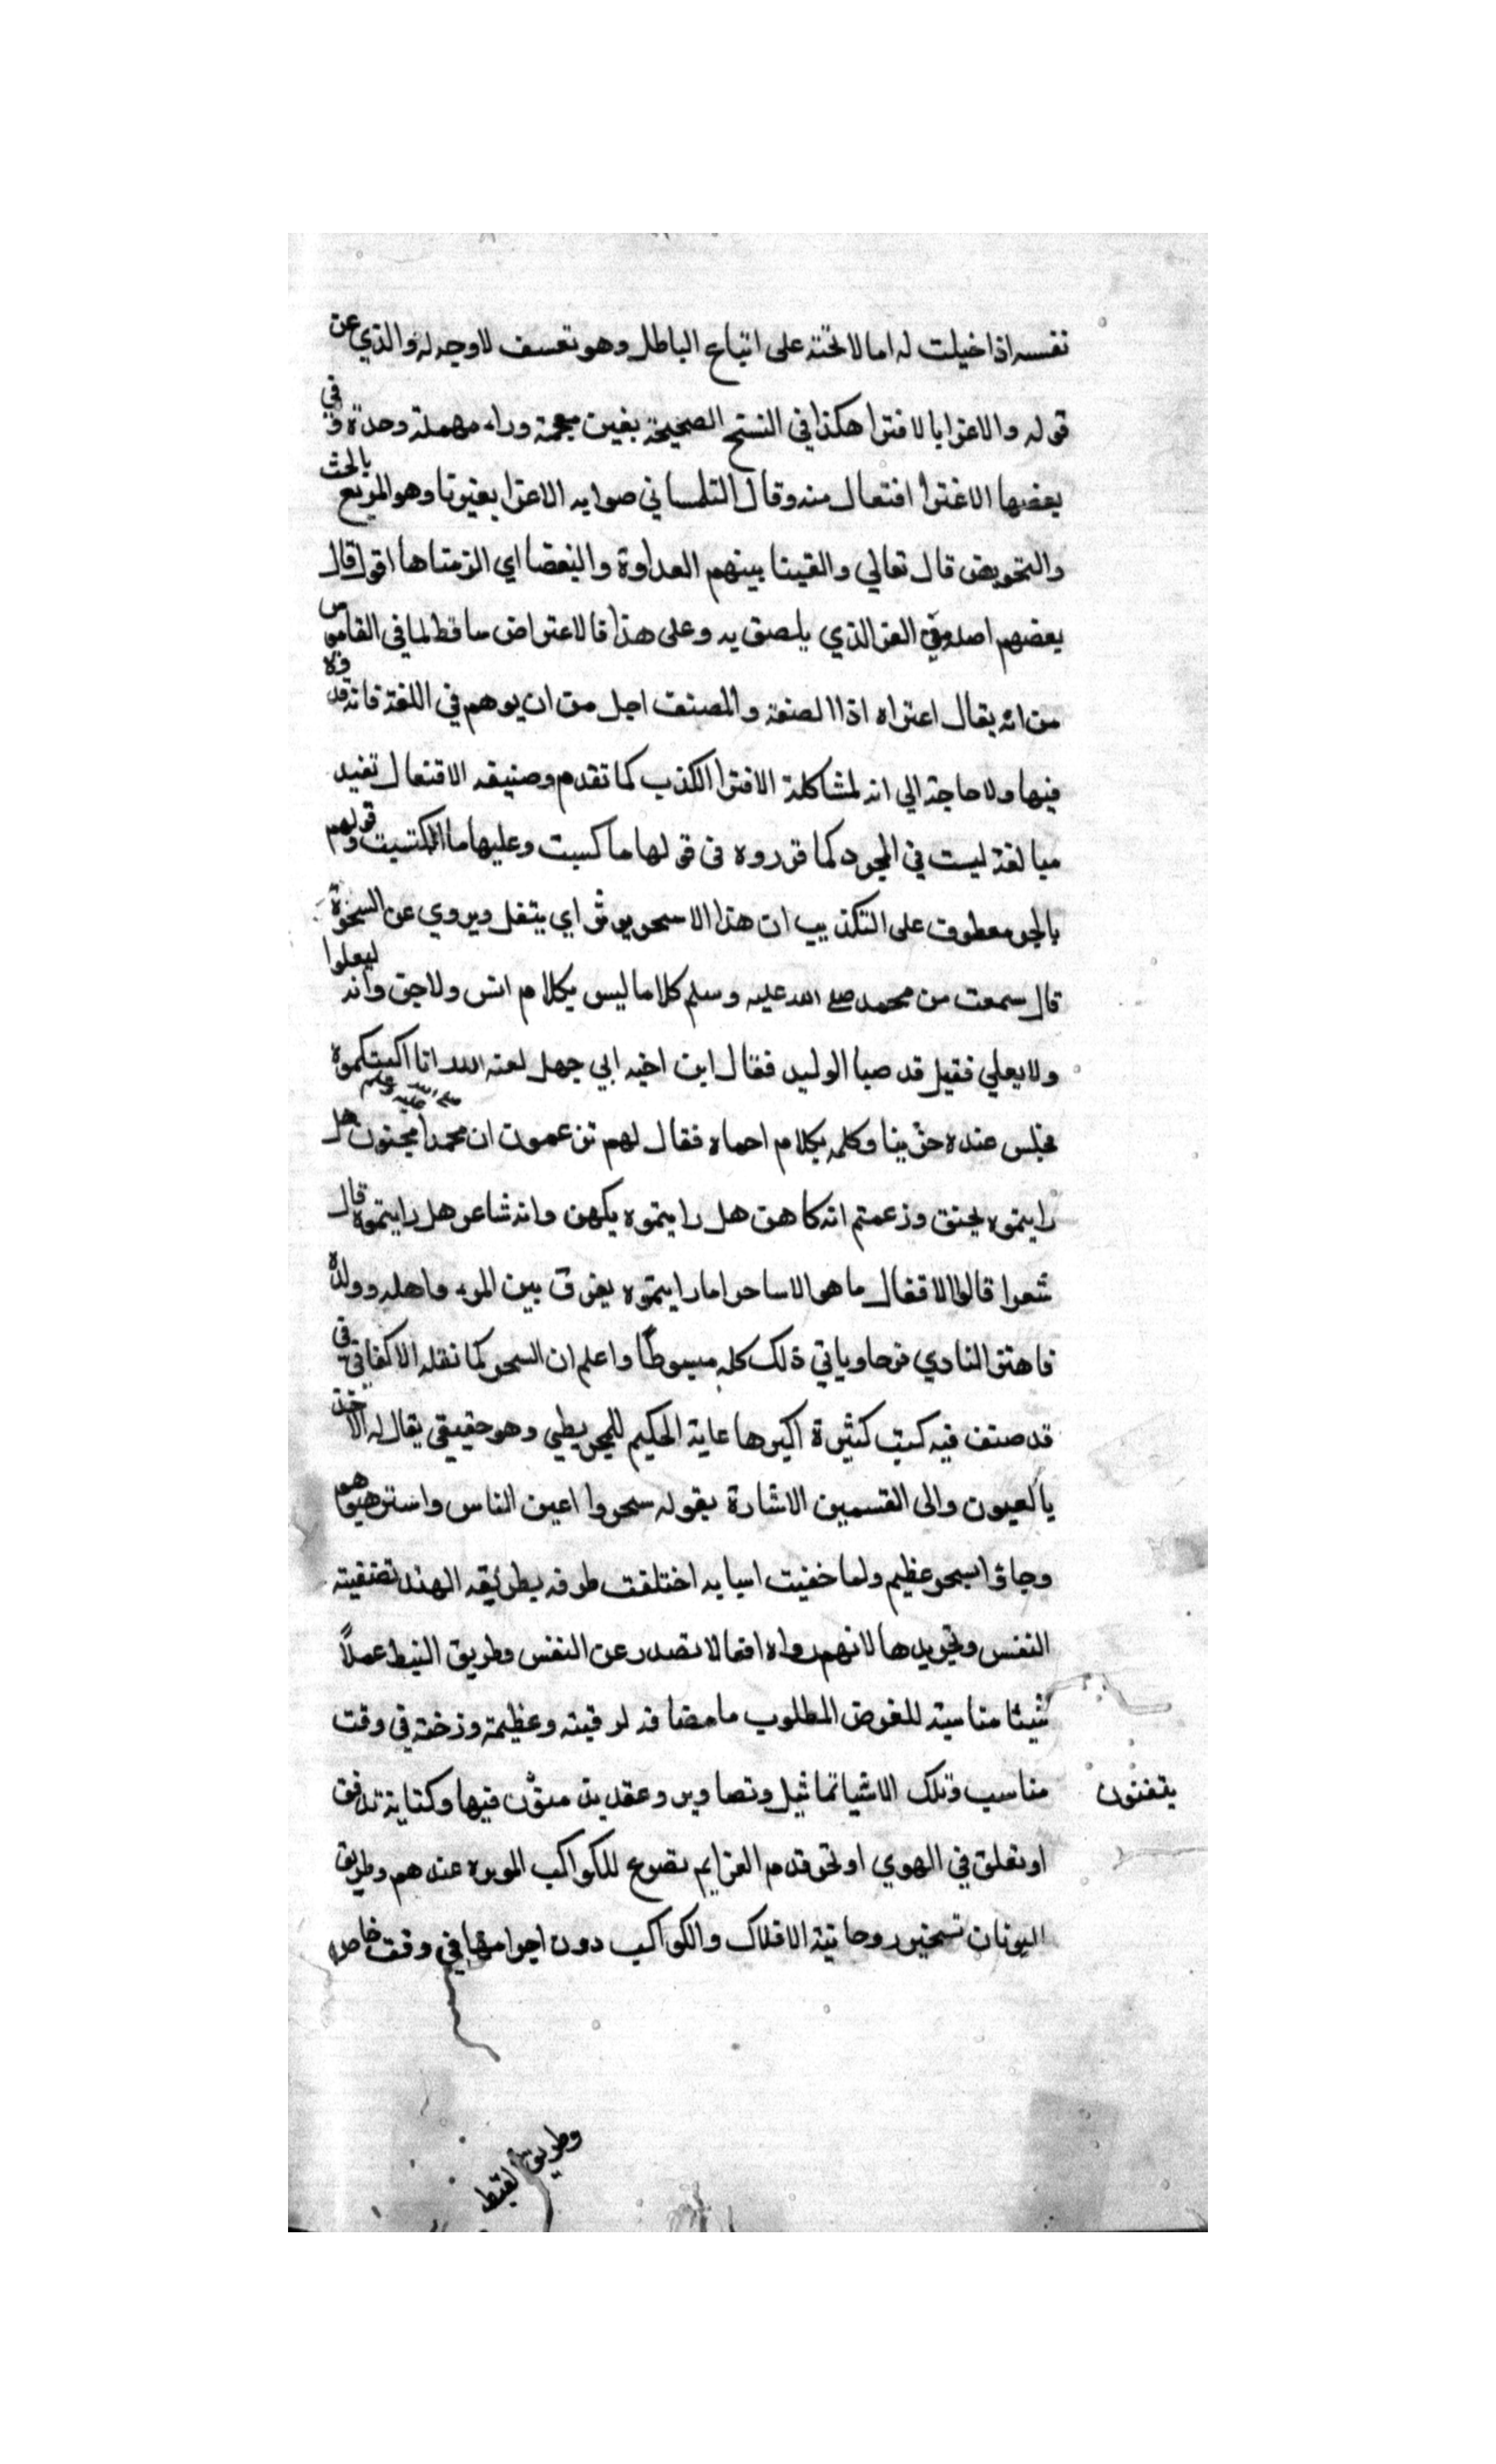 نفسه اذا خيلت له اما لا تحته على اتباع الباطل وهو تعسف لا وجه له والذي عن
قوله والاغرا بالافترا هكذا في النسخ الصحيحة بغين معجمة وراء مهملة وحدة وفي
بعضها الاغترا افتعال منه وقال التلمساني صوابه الاغرا بغير تا وهو المريع بالحث
والتحويض قال تعالي والقينا بينهم العداوة والبغضا اي الزمناها اقول قال
بعضهم اصله من الغر الذي يلصق به وعلى هذا فالاعتراض ساقط لما في القاموس
من انه يقال اعتراه اذا الصنعة والمصنف اجل من ان يوهم في اللغة فانه قدوه
فيها ولا حاجة الي انه لمشاكلة الافترا الكذب كما تقدم وصنيغه الافتعال تفيد
مبالغة ليست في المجرد كما قرروه في قو لها ما كسبت وعليها ما اكتسبت وقولهم
بالجر معطوف على التكذيب ان هذا الا سحر يوثر اي ينقل ويروي عن السحرة
قال سمعت من محمد صلى الله عليه وسلم كلاما ليس بكلام انس ولا جن وانه ليعلوا
ولا يعلي فقيل قد صبا الوليد فقال ابن اخيه ابي جهل لعنه الله انا اكفيكموه
فجلس عنده حزينا وكلمه بكلام احماه فقال لهم تزعمون ان محمدا صلى الله عليه وسلم مجنون هل
رايتموه يخنق وزعمتم انه كاهن هل رايتموه يكهن وانه شاعر هل رايتموه قال
شعرا قالوا لا فقال ما هو الا ساحر اما رايتموه يفرق بين المرء واهله وولده
فاهتز النادي فرحا وياتي ذلك كله مبسوطا واعلم ان السحر كما نقله الاكفاني في
قد صنف فيه كتب كثيرة اكبرها غاية الحكيم للمجريطي وهو حقيقي يقال له الاخذ
بالعيون والى القسمين الاشارة بقوله سحروا اعين الناس واسترهبوهم
وجاؤا بسحر عظيم ولما خفيت اسبابه اختلفت طرقه بطريقه الهند تصفيته
النفس وتجريدها لانهم رواه افعالا تصدر عن النفس وطريق النبط عملا
شيئا مناسبة للغرض المطلوب مامضافه لرقيته وعظيمة وزخنة في وقت
مناسب وتلك الاشيا تماثيل وتصاوير وعقد ينفثون فيها وكتابة تدفن
يتفنون
او تعلق في الهوي او تحرق دم العزايم تضرع للكواكب الموبره عندهم وطريق
اليونان تسخير روحانية الافلاك والكواكب دون اجرامها في وقت خاص
وطريق القبط